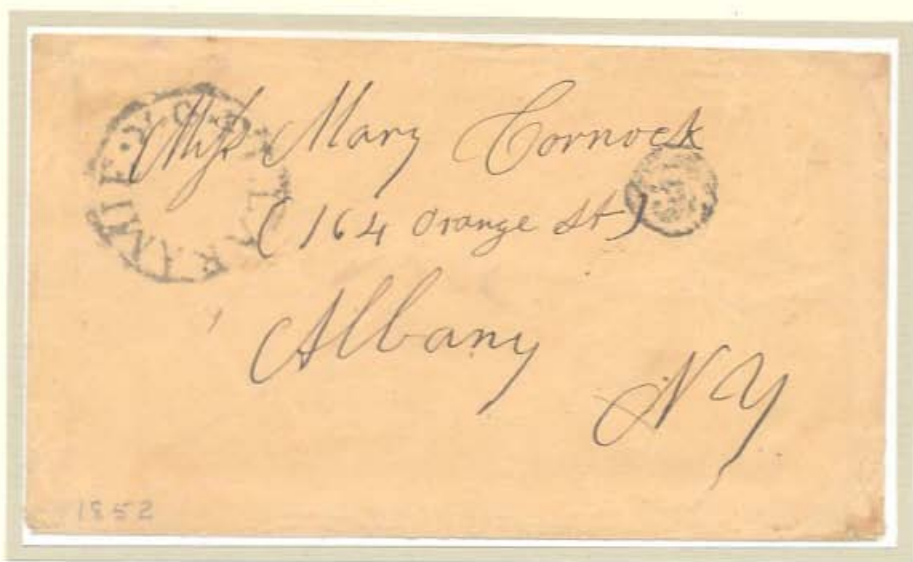 Miss Mary Cornock
(164 Orange St)
Albany
NY
1852